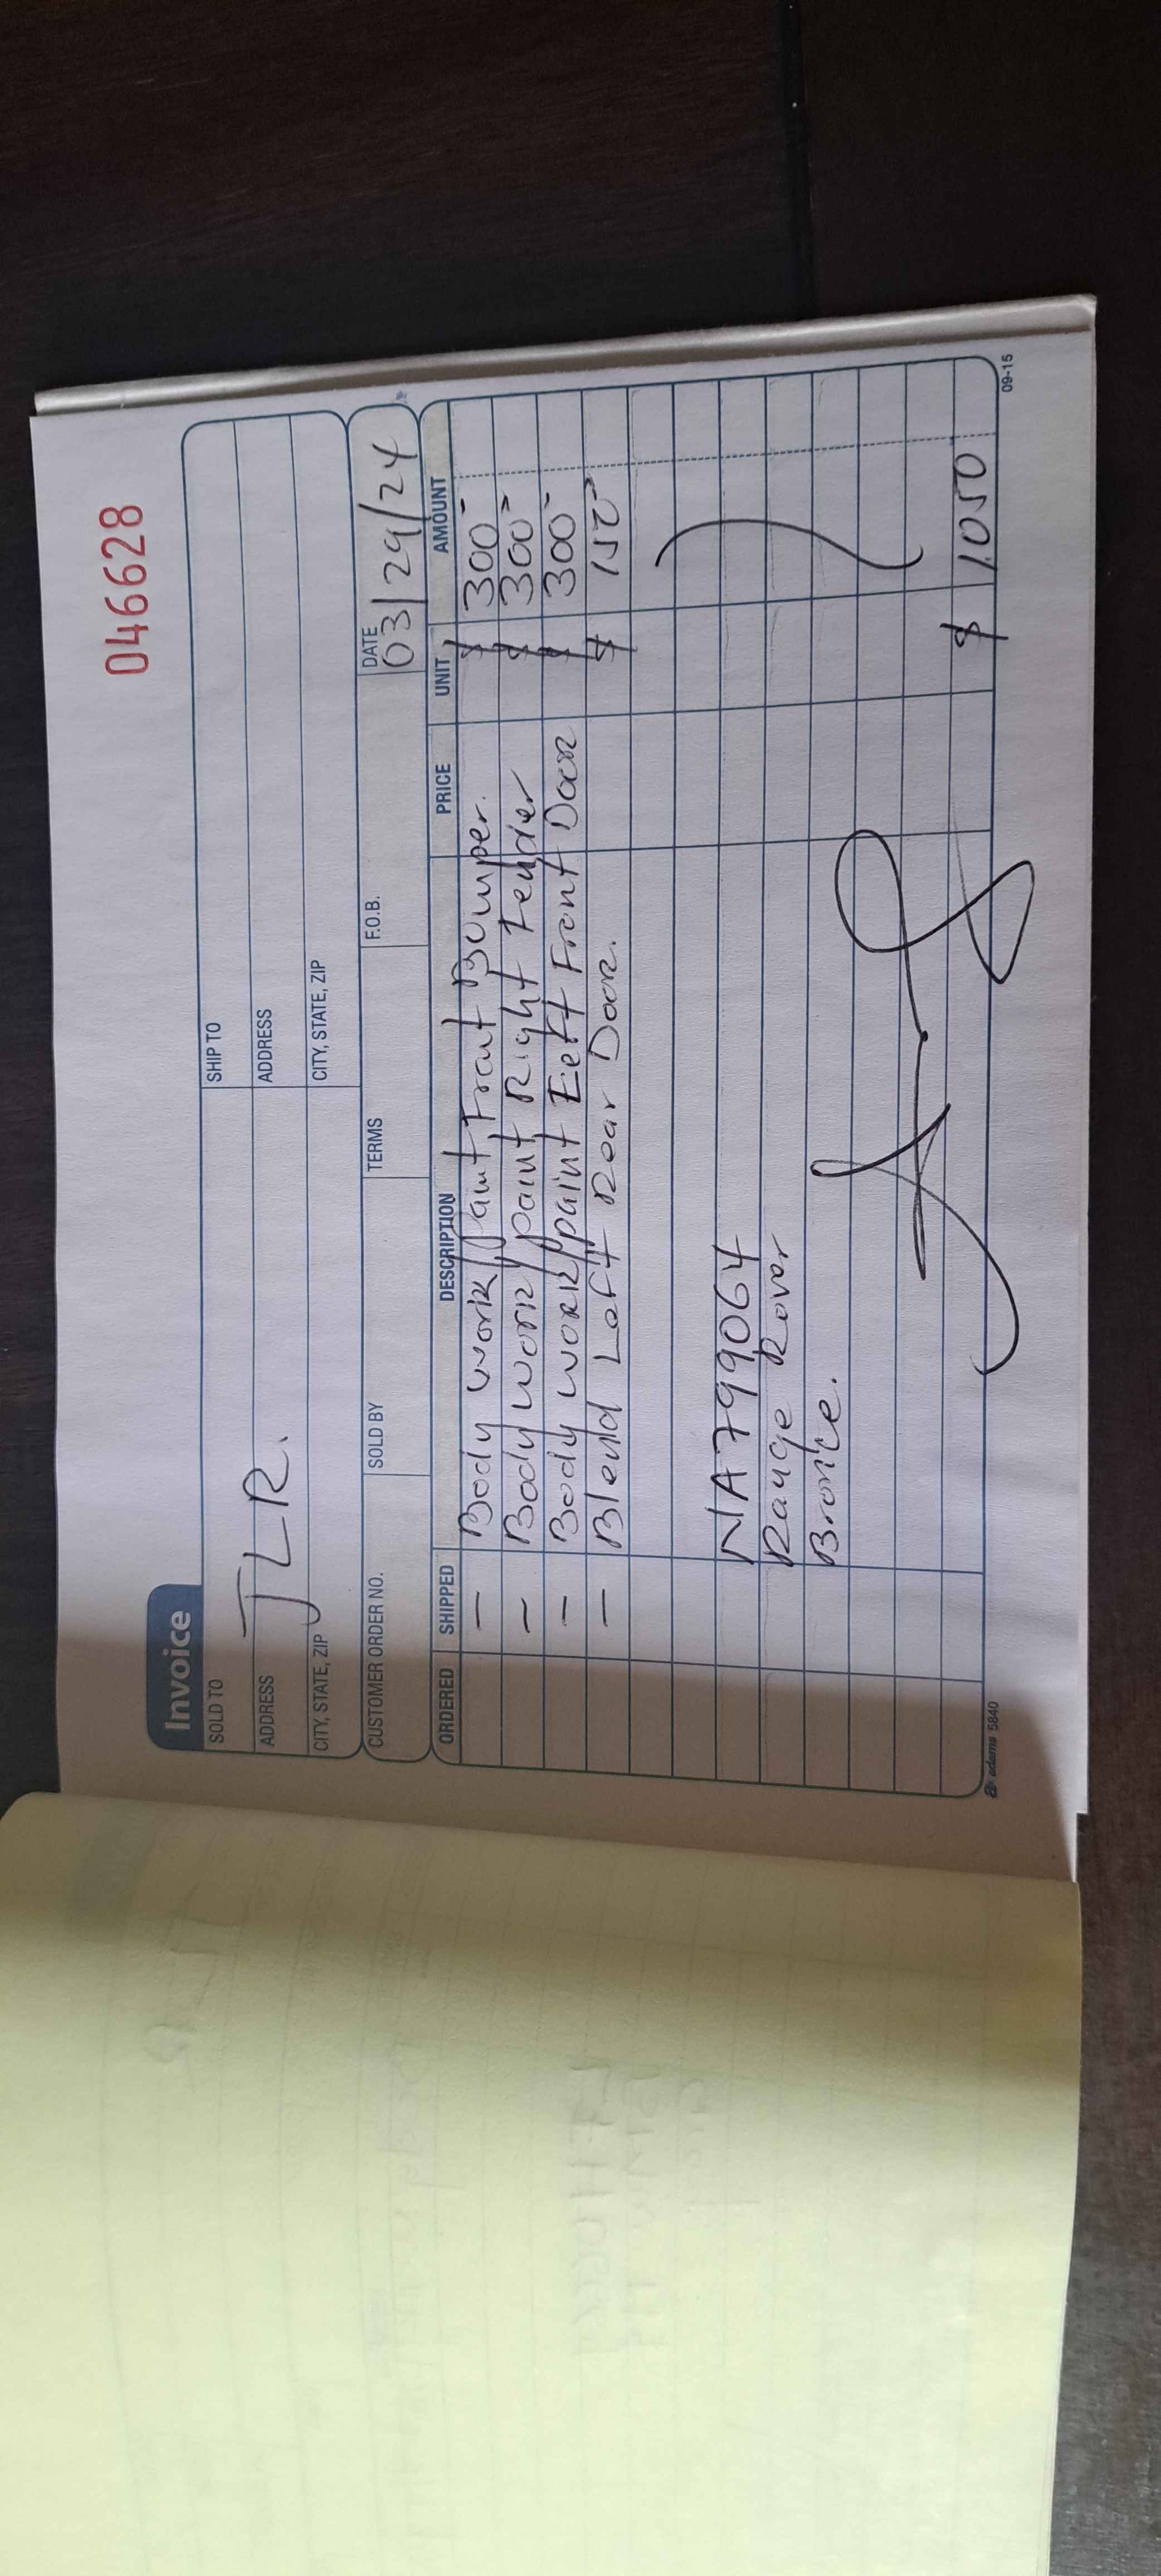 046628
Invoice
SOLD TO
SHIP TO
JLR.
ADDRESS
ADDRESS
CITY, STATE, ZIP
CITY, STATE, ZIP
CUSTOMER ORDER NO.
SOLD BY
TERMS
F.O.B.
DATE
03/29/24
ORDERED SHIPPED DESCRIPTION PRICE UNIT AMOUNT
— Body work/paint Front Bumper. $ 300-
— Body work/paint Right Fender $ 300-
— Body work/paint Left Front Door $ 300-
— Blend Left Rear Door. $ 150-
NA799064
Range Rover
Bronce.
$ 1050
adams 5840
09-15